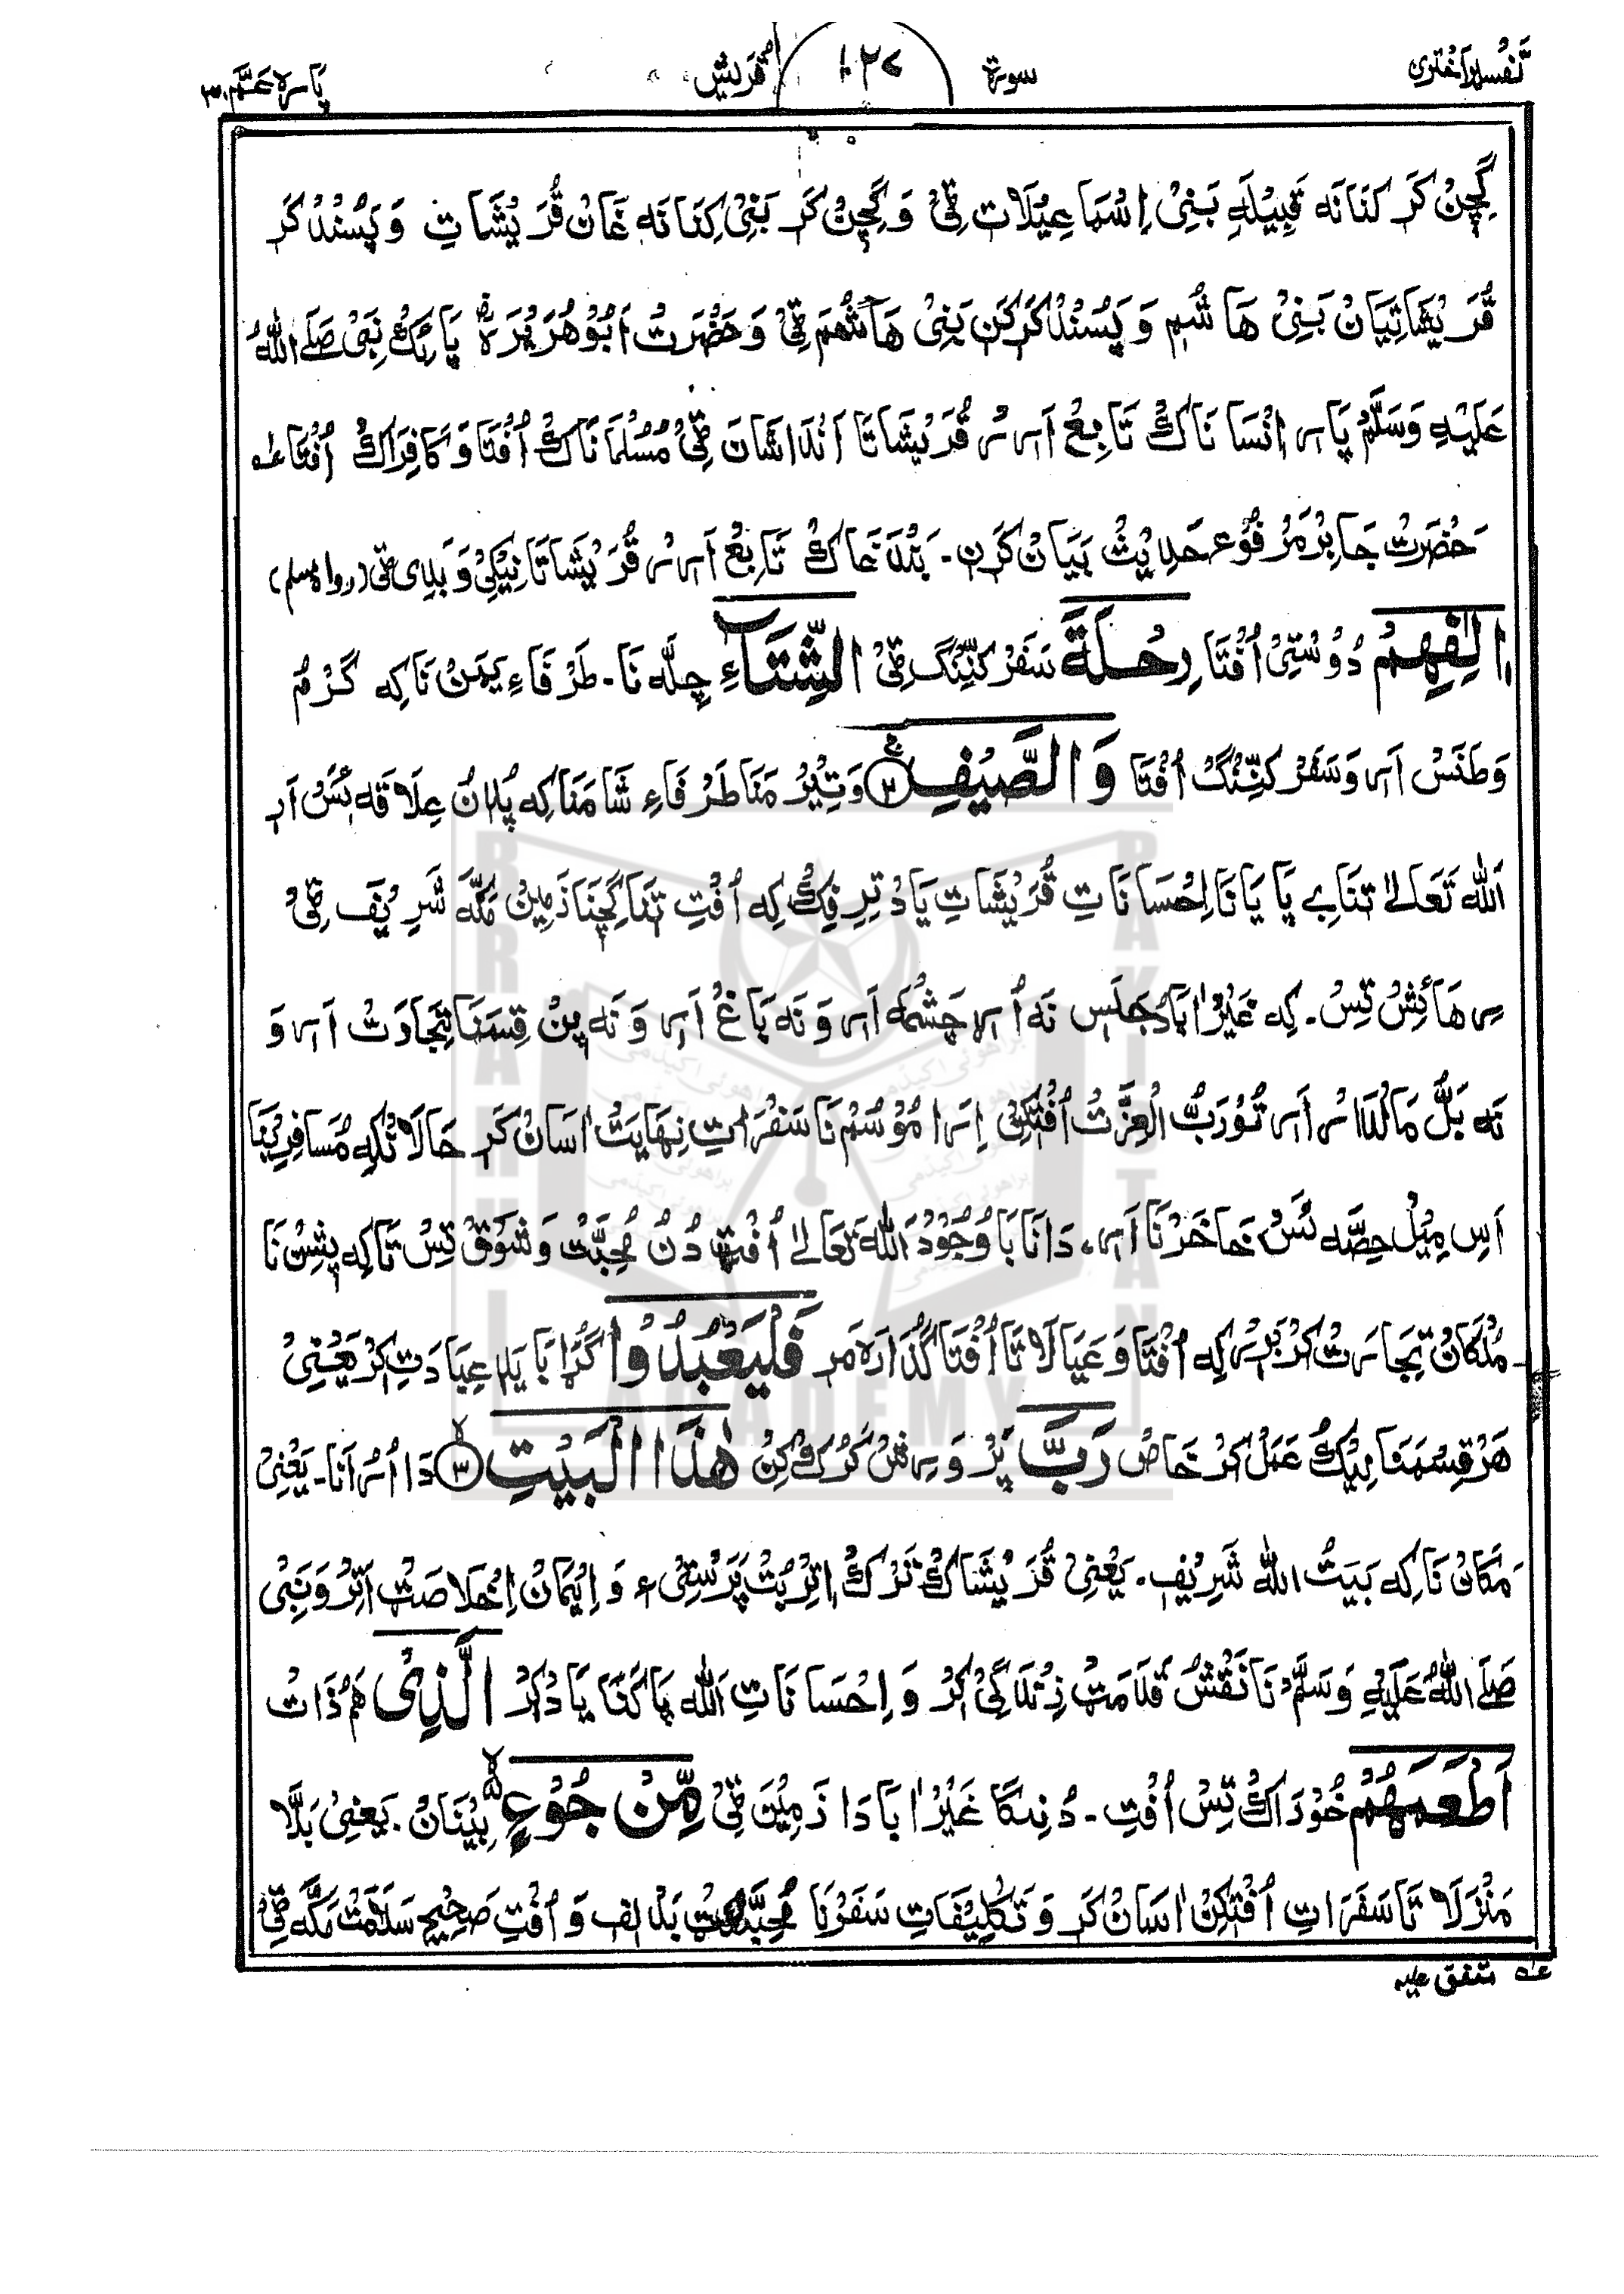 تفسیر اختری سورة ۱۰۲۷ قریش پاره عم ۳۰
گچِن کَر کنانَه قَبِیْلَهِ بَنِیْ اِسْمَاعِیْلَات ٹِیْ وَ گچِن کَر بَنِیْ کِنَانَه غَان قُرَیْشَاتِ وَ پَسُنْدْ کَر
قُرَیْشَاتِیَانْ بَنِیْ هَاشُم وَ پَسُنْدْ کَر کَنِ بَنِیْ هَاشُم ٹِیْ وَ حَضْرَتْ اَبُوْهُرَیْرَهؓ پَائِکْ نَبِیْ صَلَی اللّٰهُ
عَلَیْهِ وَسَلَّمْ پَارِ اِنْسَانَاکْ تَابِعْ اَرِرْ قُرَیْشَاتَا اَنْدَاشَان ٹِیْ مُسْلمَانَاکْ اُفْتَا وَ کَافِرَاکْ اُفْتَا عـه
حَضْرَتْ جَابِرْ مَرْفُوْع حَدِیْثْ بَیَانْ کَرِن۔ بَنْدَغَاکْ تَابِعْ اَرِرْ قُرَیْشَاتَا نِیْکِیْ وَ بَدِی ٹِی (رواه مسلم)
اٖلٰفِهِمْ دُوْسْتِیْ اُفْتَا رِحْلَةَ سَفَرْ کَنِّنْگ ٹِیْ الشِّتَآءِ چِلَّه نَا۔ طَرْفَاءِ یَمَنْ نَا کِه گَرْم
وَطَنَسْ اَرِ وَ سَفَرْ کَنِّنْگ اُفْتَا وَالصَّیْفِ ② وَ تِیْرْ مَنَا طَرْفَاءِ شَامَنَا کِه یَلُنْ عِلَاقَه ئَسْ اَر
اَللّٰه تَعَالٰی تَنَاءِ پَایَانَا اِحْسَانَاتِ قُرَیْشَاتِ یَاد تِرِفِکْ کِه اُفْتِ تَنَا گچِنَا زَمِیْن مَکَّهَ شَرِیْف ٹِیْ
رِهَائِشْ تِسْ۔ کِه غَیْر اٰبَاد جَلَس نَه اُرا چَشْمَه اَر وَ نَه بَاغْ اَر وَ نَه پِنْ قِسْمَنَا تِجَارَتْ اَر وَ
نَه بَلُّ مَالْدَارْ اَر تَوْ رَبُّ الْعِزَّتْ اُفْتَکِنْ اِرَا مُوْسُمْ نَا سَفَرَاتِ نِهَایَتْ اٰسَانْ کَر حَالَانْکِه مُسَافِرِیْنَا
اَسِ مِیْل حِصَّه ئَسْ خَاخَرْنَا اَر۔ دَانَا بَاوُجُوْدْ اَللّٰه تَعَالٰی اُفْتِ دُنْ مُحِبَّتْ وَ شَوْقْ تِسْ تَاکِه پِشِنْ نَا
مُلْکَانْ تِجَارَتْ کِرْ بَرِر کِه اُفْتَا وَ عَیَالَاتَا اُفْتَا گُذَارَه مَر فَلْیَعْبُدُوْا گُڑا بَایَد عِبَادَتِ کِرْ یَعْنِیْ
هَرْ قِسْمَنَا نِیْکْ عَمَلْ کِرْ خَاص رَبَّ پَرْوَرِشْ کَرُکْ کِنْ هٰذَا الْبَیْتِ ③ دَا اُرَانَا۔ یَعْنِیْ
مَکَان نَا کِه بَیَتُ اللّٰه شَرِیْف۔ یَعْنِیْ قُرَیْشَاکْ تَرْکْ اِیْرْ بُتْ پَرَسْتِیْ ءِ وَ اِیْمَانْ اِخْلَاصَتْ اَیْرْ وَ نَبِیْ
صَلَی اللّٰهُ عَلَیْهِ وَسَلَّمْ نَا نَقْشُ قَدَمَتْ زِنْدَگِیْ کِرْ وَ اِحْسَانَاتِ اَللّٰه پَاکَنَا یَادْ کِرْ الَّذِیْ هُم ذَاتْ
اَطْعَمَهُمْ خُوْرَاکْ تِسْ اُفْتِ۔ دُنِنْکَا غَیْر اٰبَادَا زَمِیْن ٹِیْ مِّنْ جُوْعٍ بِیْنَانْ۔ یَعْنِیْ بَلَّا
مَنْزِلَاتَا سَفَرَاتِ اُفْتَکِنْ اٰسَانْ کَر وَ تَکْلِیْفَاتِ سَفَرْنَا مُحِبَّتْ بَدْلِف وَ اُفْتِ صَحِیْح سَلَامَتْ مَکَّه ٹِیْ
عـه متفق علیه
BRAHUI ACADEMY PAKISTAN
براهوئی اکیڈمی